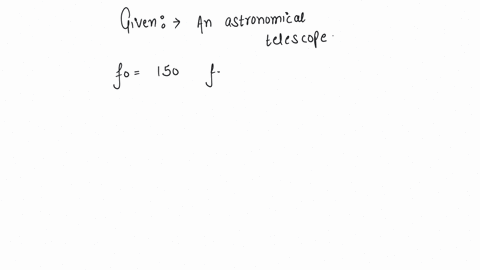 Given:→ An astronomical
telescope.
fo = 150 f.